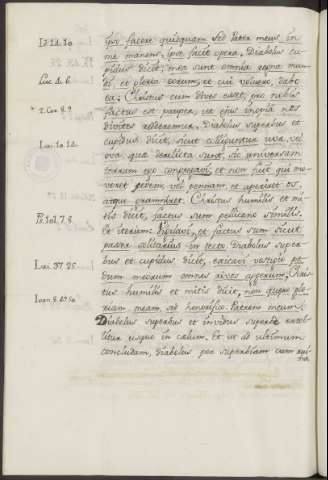 Jo. 14. 10.
ipso facere quidquam. sed Pater meus in
me manens, ipse facit opera, Diabolus cu-
pidus dicit, mea sunt omnia regna mun-
Luc. 4. 6.
di, et gloria eorum, et cui voluero, dabo
ea; Christus cum dives esset, pro nobis
2. Cor. 8. 9.
factus est pauper, ut ejus inopia nos
divites essemus, Diabolus superbus et
cupidus dicit, sicut colliguntur ova, vel
Isai. 10. 14.
ova quae derelicta sunt, sic universam
terram ego congregavi, et non fuit qui mo-
veret pennam, et aperiret os,
atque gannniret. Christus humilis et mi-
tis dicit, factus sum pellicano similis,
Ps. 101. 7. 8.
et iterum: Vigilavi, et factus sum sicut
passer solitarius in tecto, Diabolus super-
bus et cupidus dicit, siccavi vestigio pe-
Isai. 37. 25.
dum meorum omnes rivos aggerum, Chris-
tus humilis et mitis dicit, non quaero glo-
Ioan. 8.
riam meam, sed honorifico Patrem meum.
Diabolus superbus et invidus superbe extol-
litur usque in caelum. Et ut ad ultimum
concludam, diabolus per superbiam cum